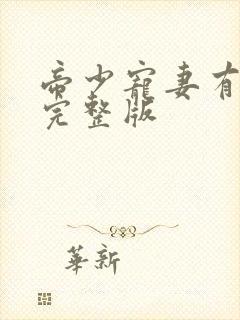 帝少寵妻有
完整版
華新